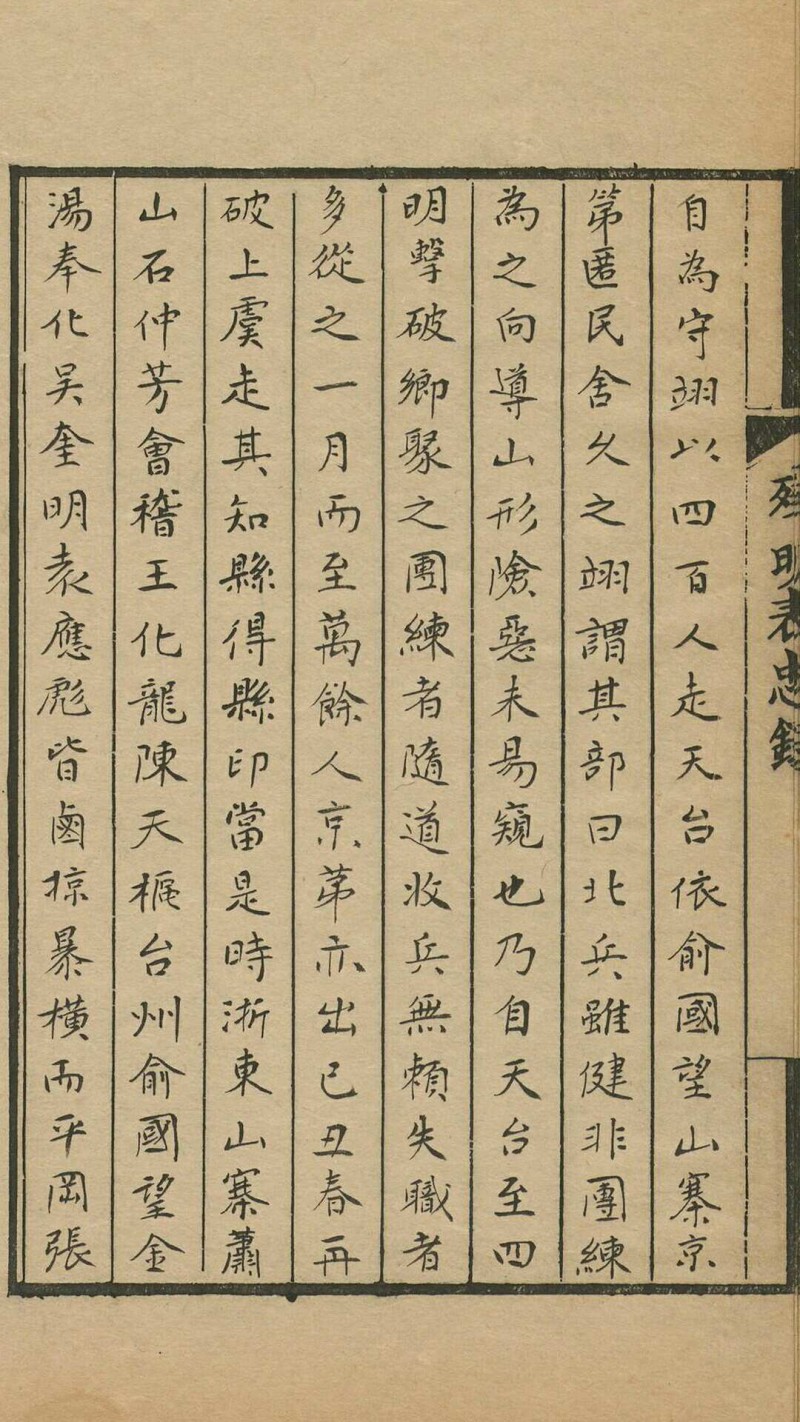 殘明表忠錄
自為守翊以四百人走天台依俞國望山寨京
第匿民舍久之翊謂其部曰北兵雖健非團練
為之向導山形險惡未易窺也乃自天台至四
明擊破鄉聚之團練者隨道收兵無賴失職者
多從之一月而至萬餘人京苐亦出己丑春再
破上虞走其知縣得縣印當是時浙東山寨蕭
山石仲芳會稽王化龍陳天樞台州俞國望金
湯奉化吴奎明袁應彪皆鹵掠暴橫而平岡張